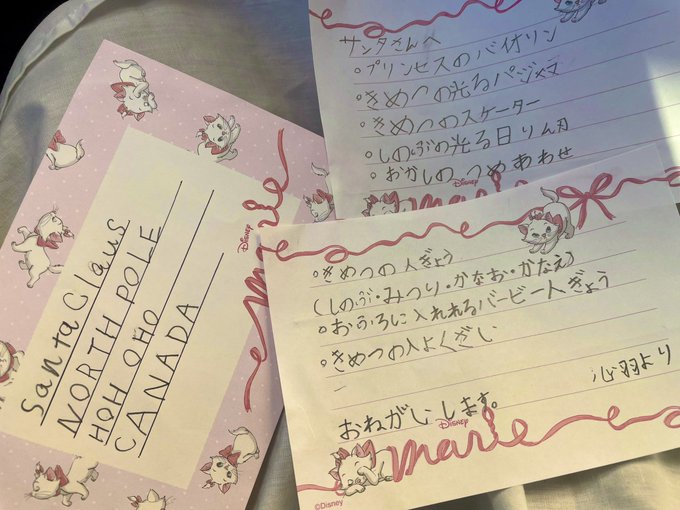 Santa Claus
NORTH POLE
HOH OHO
CANADA
Disney
marie
Disney
サンタさんへ
。プリンセスのバイオリン
。きめつの光るパジャマ
。きめつのスケーター
。しのぶの光る日りん刀
。おかしのつめあわせ
Disney
marie
。きめつの人ぎょう
(しのぶ・みつり・かなお・かなえ)
。おふろに入れれるバービー人ぎょう
。きめつの入よくざい
おねがいします。
心羽より
Disney
marie
©Disney